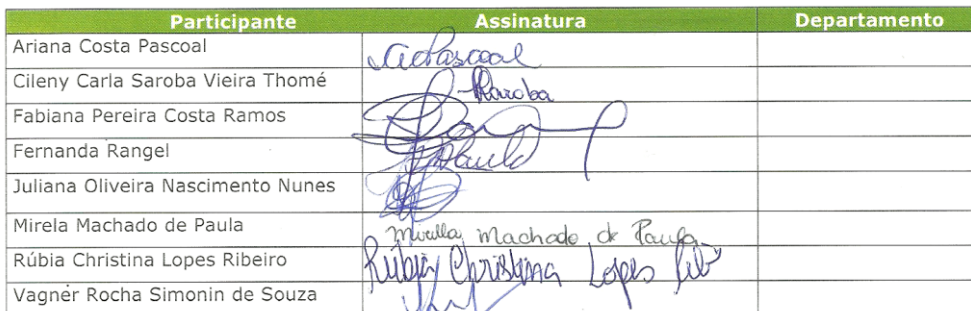 Participante Assinatura Departamento
Ariana Costa Pascoal ACPascoal
Cileny Carla Saroba Vieira Thomé Saroba
Fabiana Pereira Costa Ramos
Fernanda Rangel
Juliana Oliveira Nascimento Nunes
Mirela Machado de Paula Mirella Machado de Paula
Rúbia Christina Lopes Ribeiro Rúbia Christina Lopes Rib
Vagner Rocha Simonin de Souza